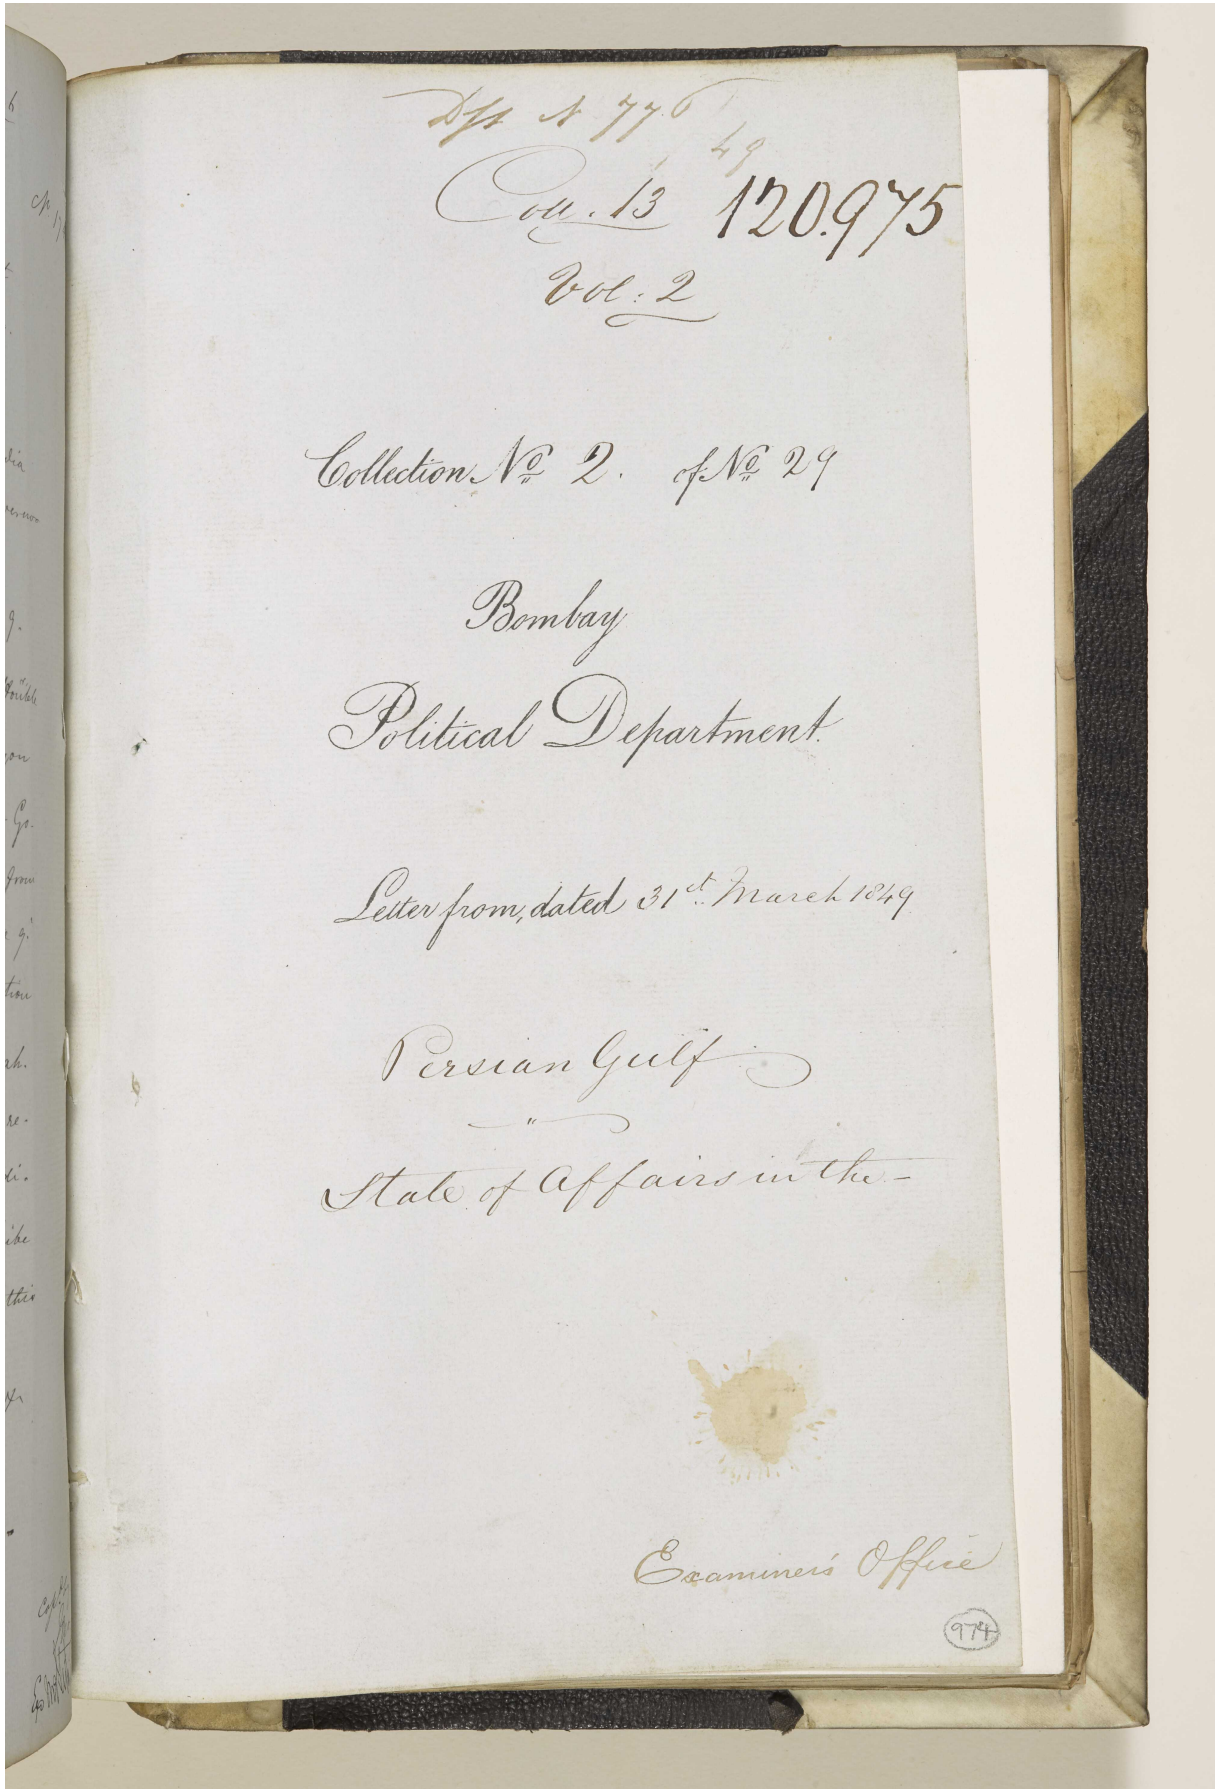 Dft N 776
49
Coll. 13 120.975
Vol: 2
Collection No 2. of No 29
Bombay
Political Department.
Letter from, dated 31st March 1849
Persian Gulf
State of Affairs in the -
Examiner's Office
974